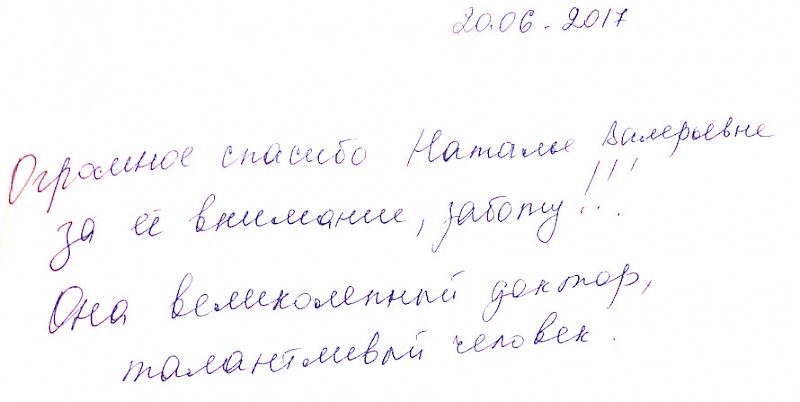 20.06.2017
Огромное спасибо Наталье Валерьевне
за её внимание, заботу!!!
Она великолепный доктор,
талантливый человек.